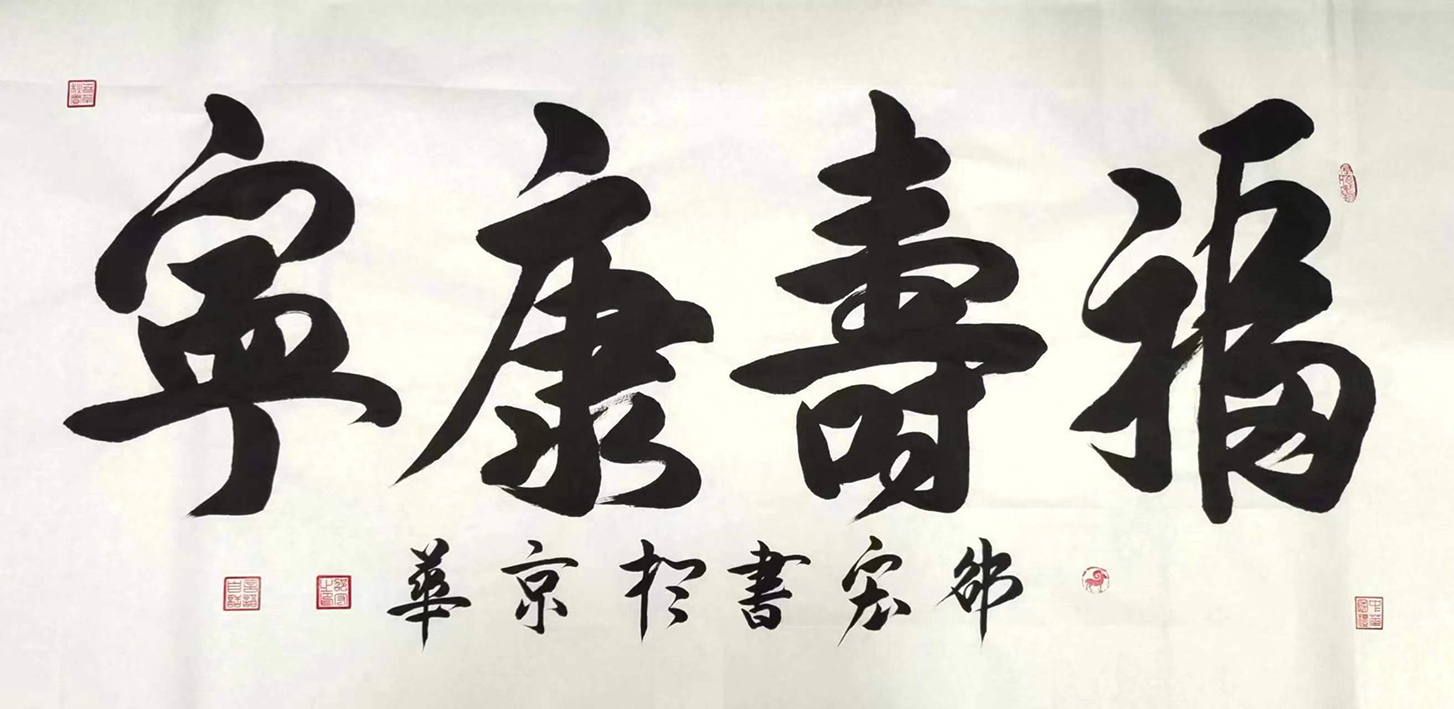 福壽康寧
邹宏書於京華